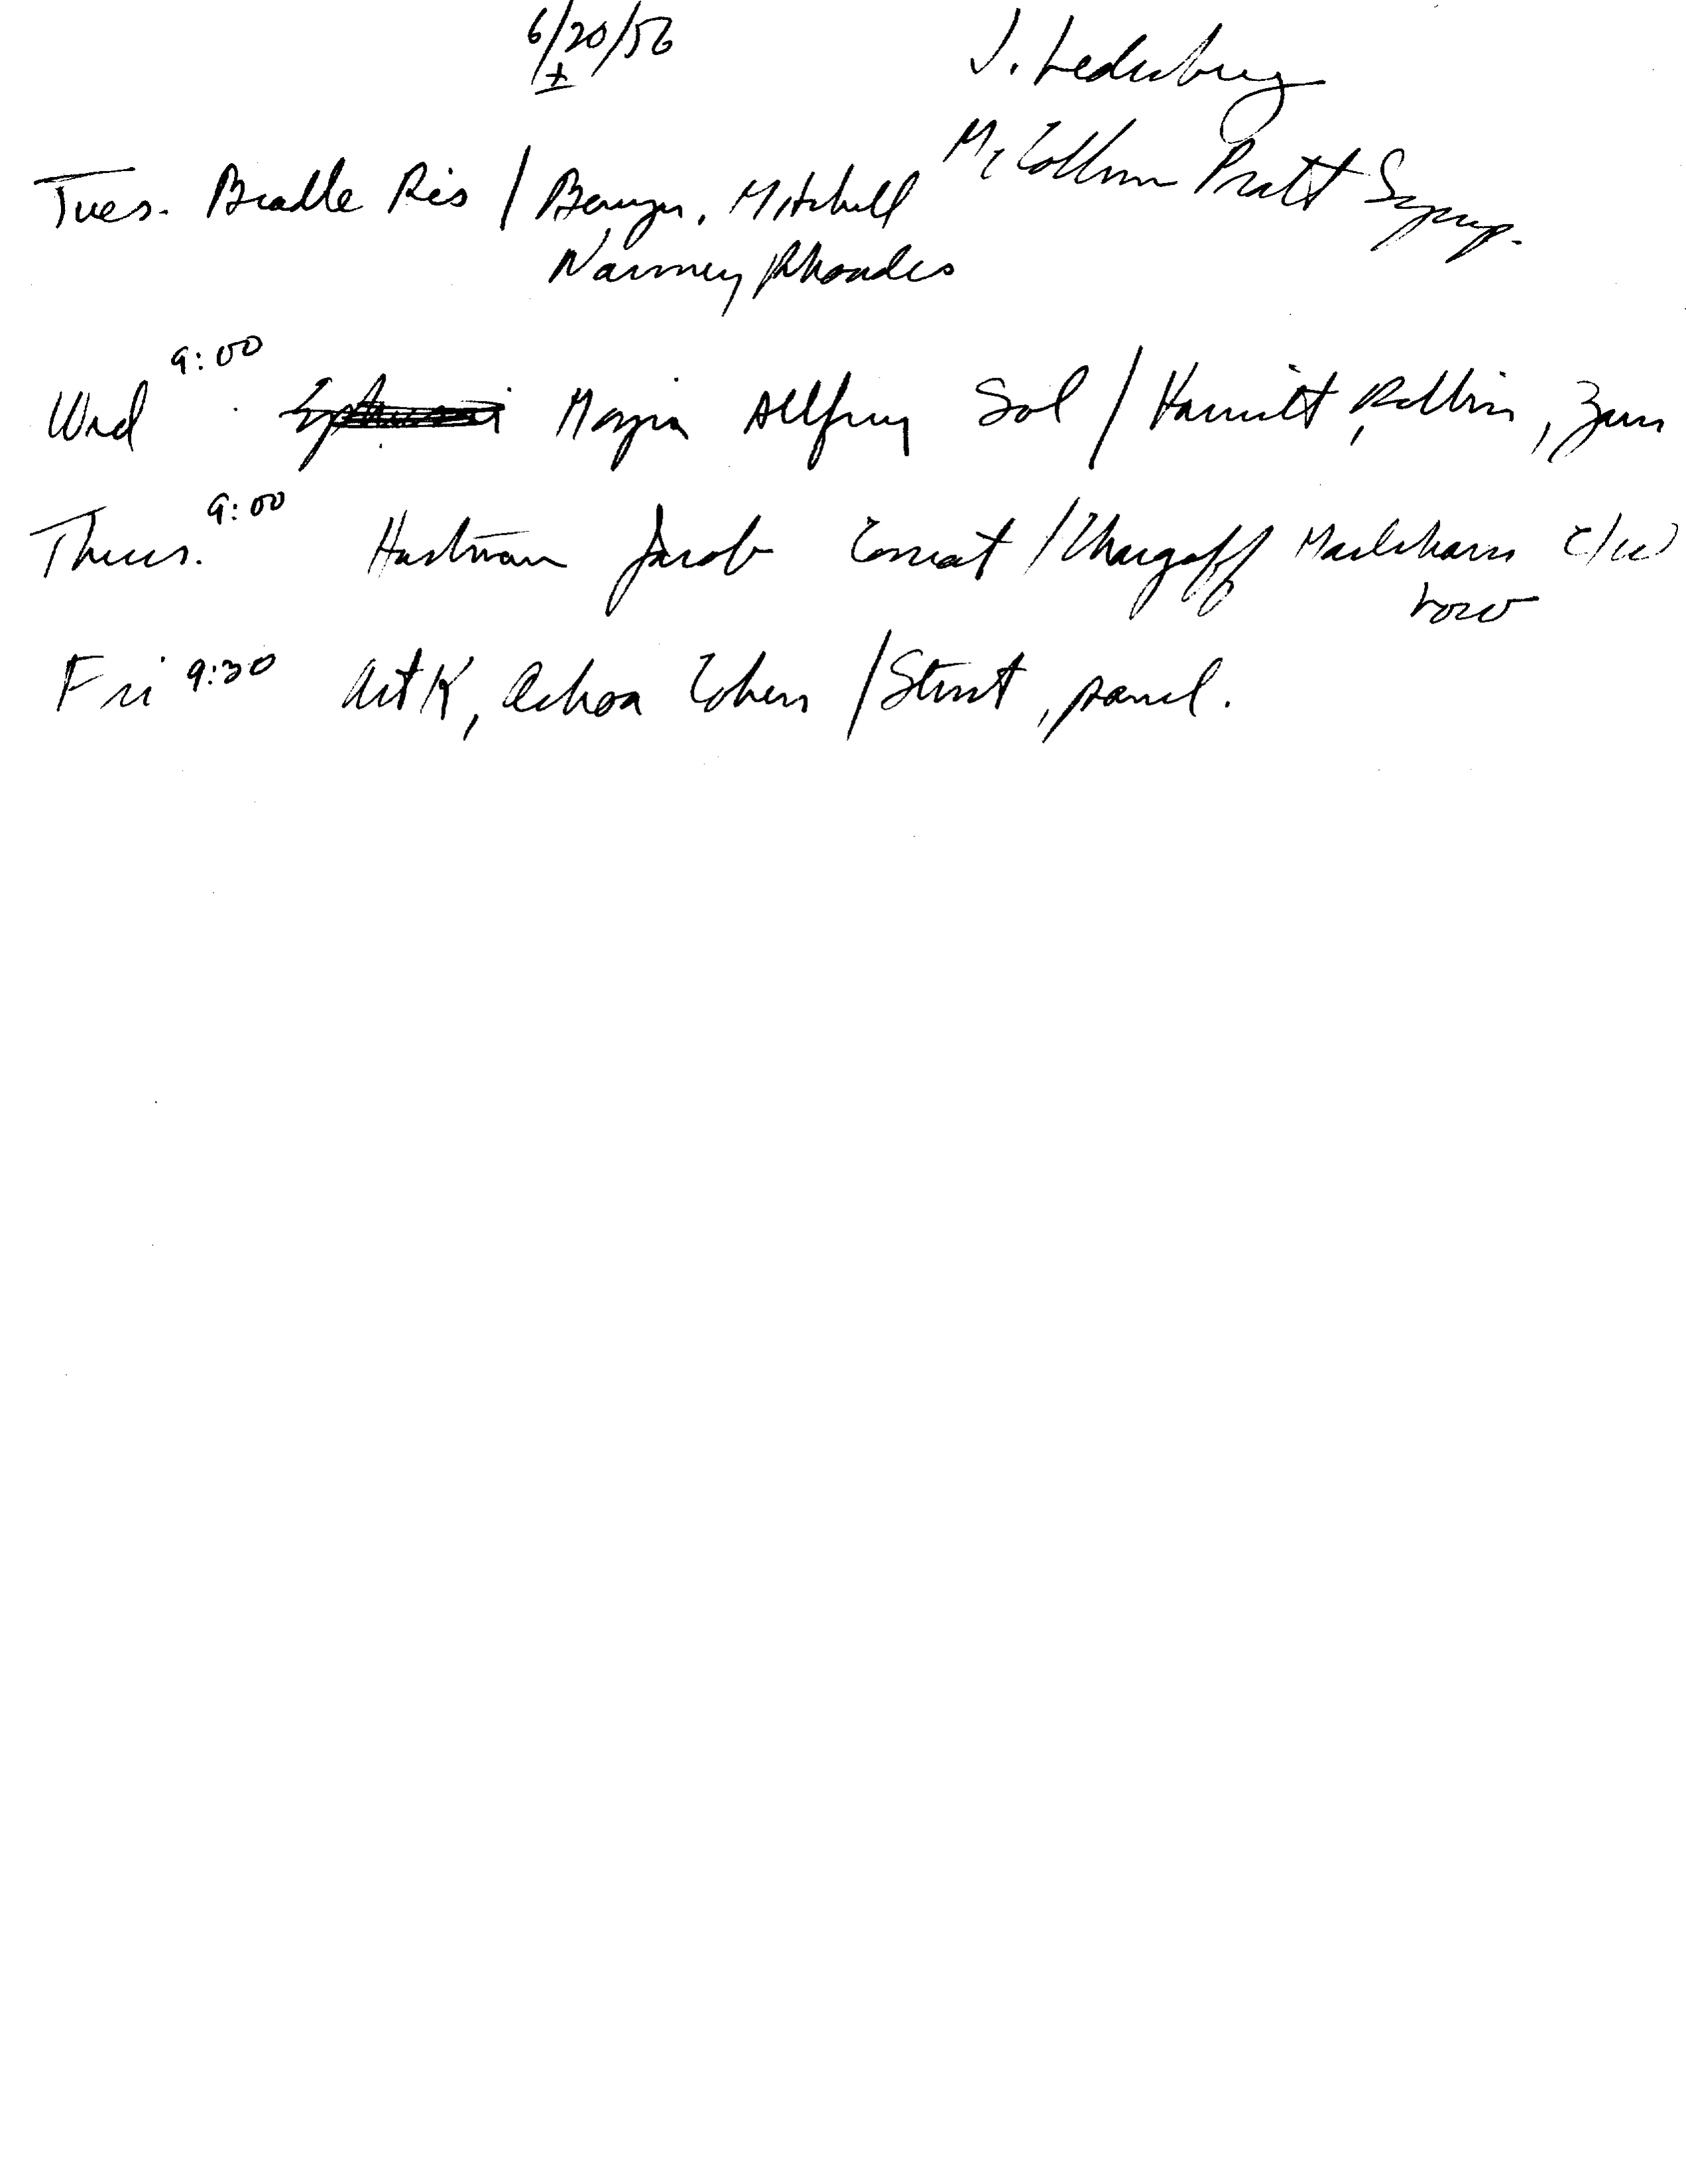 6/20/56
±
J. Lederberg
McCollum Pratt Symp.
Tues. Beadle Ris / Benzer, Mitchell
Nanney, Rhoades
Wed 9:00 Mazia Allfrey Sol / Hamilt, Rollin, Zam
Thurs. 9:00 Hartman Jacob Conrat / Chargaff Markham C/W
Low
Fri 9:30 Art K, Ochoa Cohen / Stent, panel.